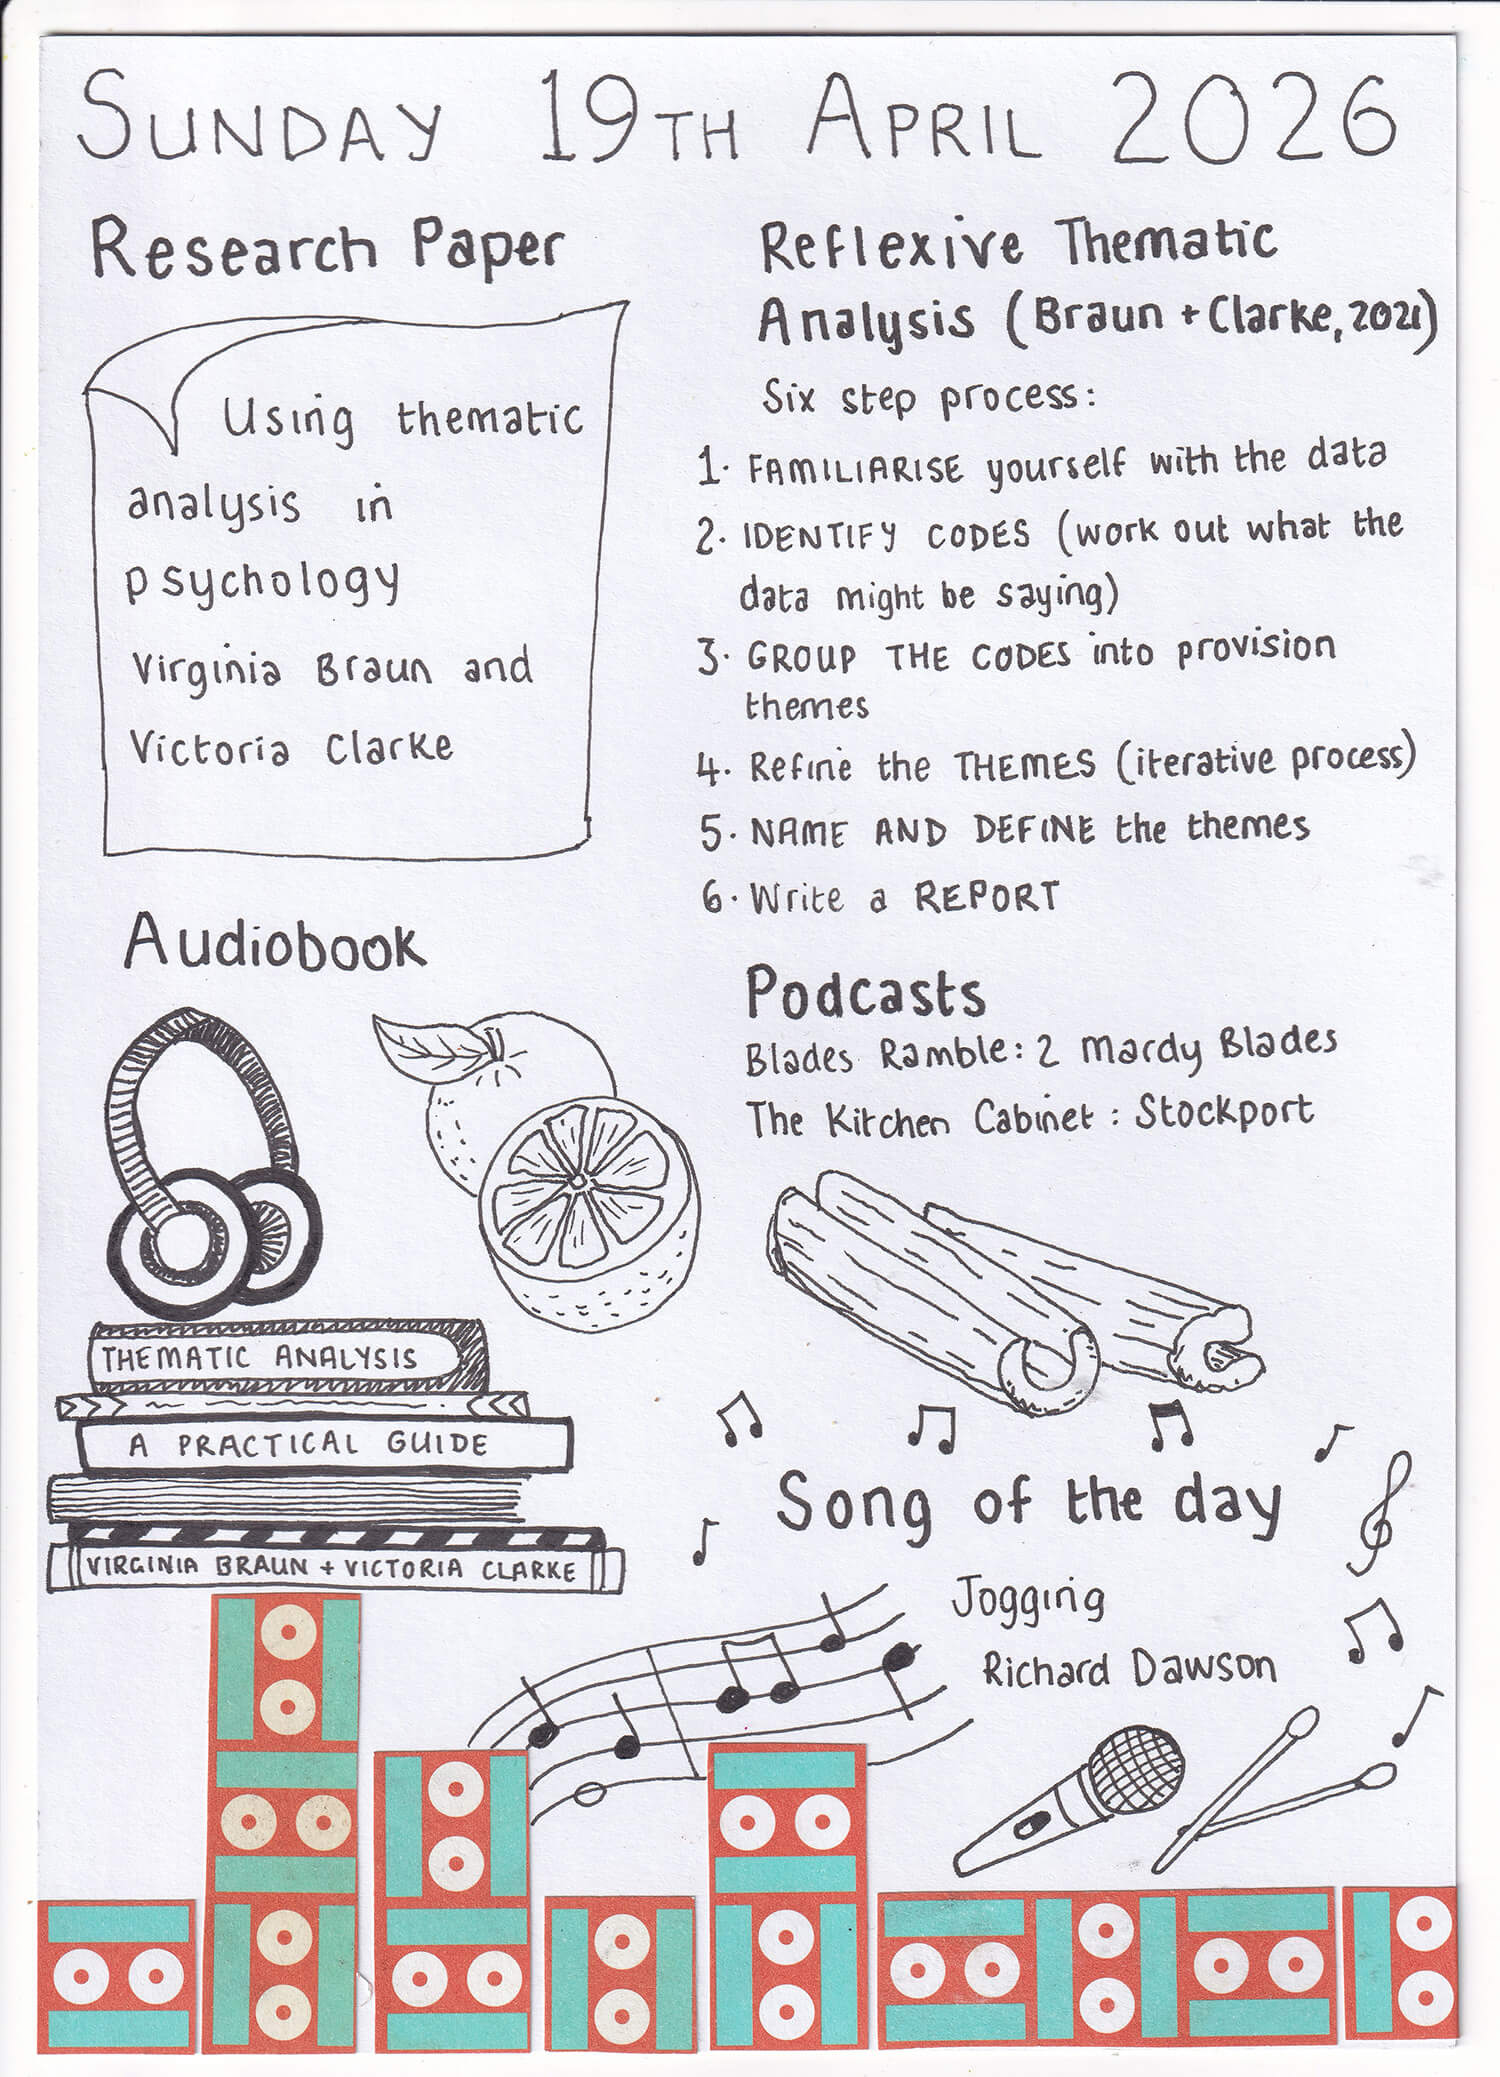 SUNDAY 19TH APRIL 2026
Research Paper
Using thematic
analysis in
psychology
Virginia Braun and
Victoria Clarke
Reflexive Thematic
Analysis (Braun + Clarke, 2021)
Six step process:
1. FAMILIARISE yourself with the data
2. IDENTIFY CODES (work out what the
data might be saying)
3. GROUP THE CODES into provision
themes
4. Refine the THEMES (iterative process)
5. NAME AND DEFINE the themes
6. Write a REPORT
Audiobook
THEMATIC ANALYSIS
A PRACTICAL GUIDE
VIRGINIA BRAUN + VICTORIA CLARKE
Podcasts
Blades Ramble: 2 Mardy Blades
The Kitchen Cabinet: Stockport
Song of the day
Jogging
Richard Dawson